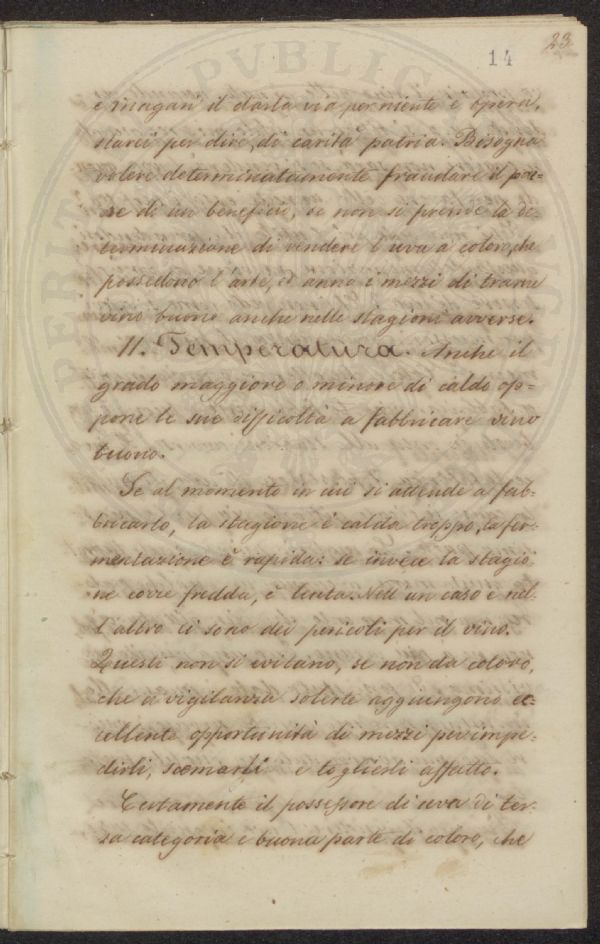 14
23
e magari il darla via per niente è opera,
starei per dire, di carità patria. Bisogna
volere determinatamente fraudare il pae-
se di un beneficio, se non si prende la de-
terminazione di vendere l'uva a coloro, che
possedono l'arte, ed anno i mezzi di trarne
vino buono anche nelle stagioni avverse.
11. Temperatura. Anche il
grado maggiore o minore di caldo op-
pone le sue difficoltà a fabbricare vino
buono.
Se al momento in cui si attende a fab-
bricarlo, la stagione è calda troppo, la fer-
mentazione è rapida: se invece la stagio-
ne corre fredda, è lenta. Nell'un caso e nel-
l'altro ci sono dei pericoli per il vino.
Questi non si evitano, se non da coloro,
che a vigilanza solerte aggiungono ec-
cellente opportunità di mezzi per impe-
dirli, scemarli e toglierli affatto.
Certamente il possessore di uva di ter-
za categoria e buona parte di coloro, che